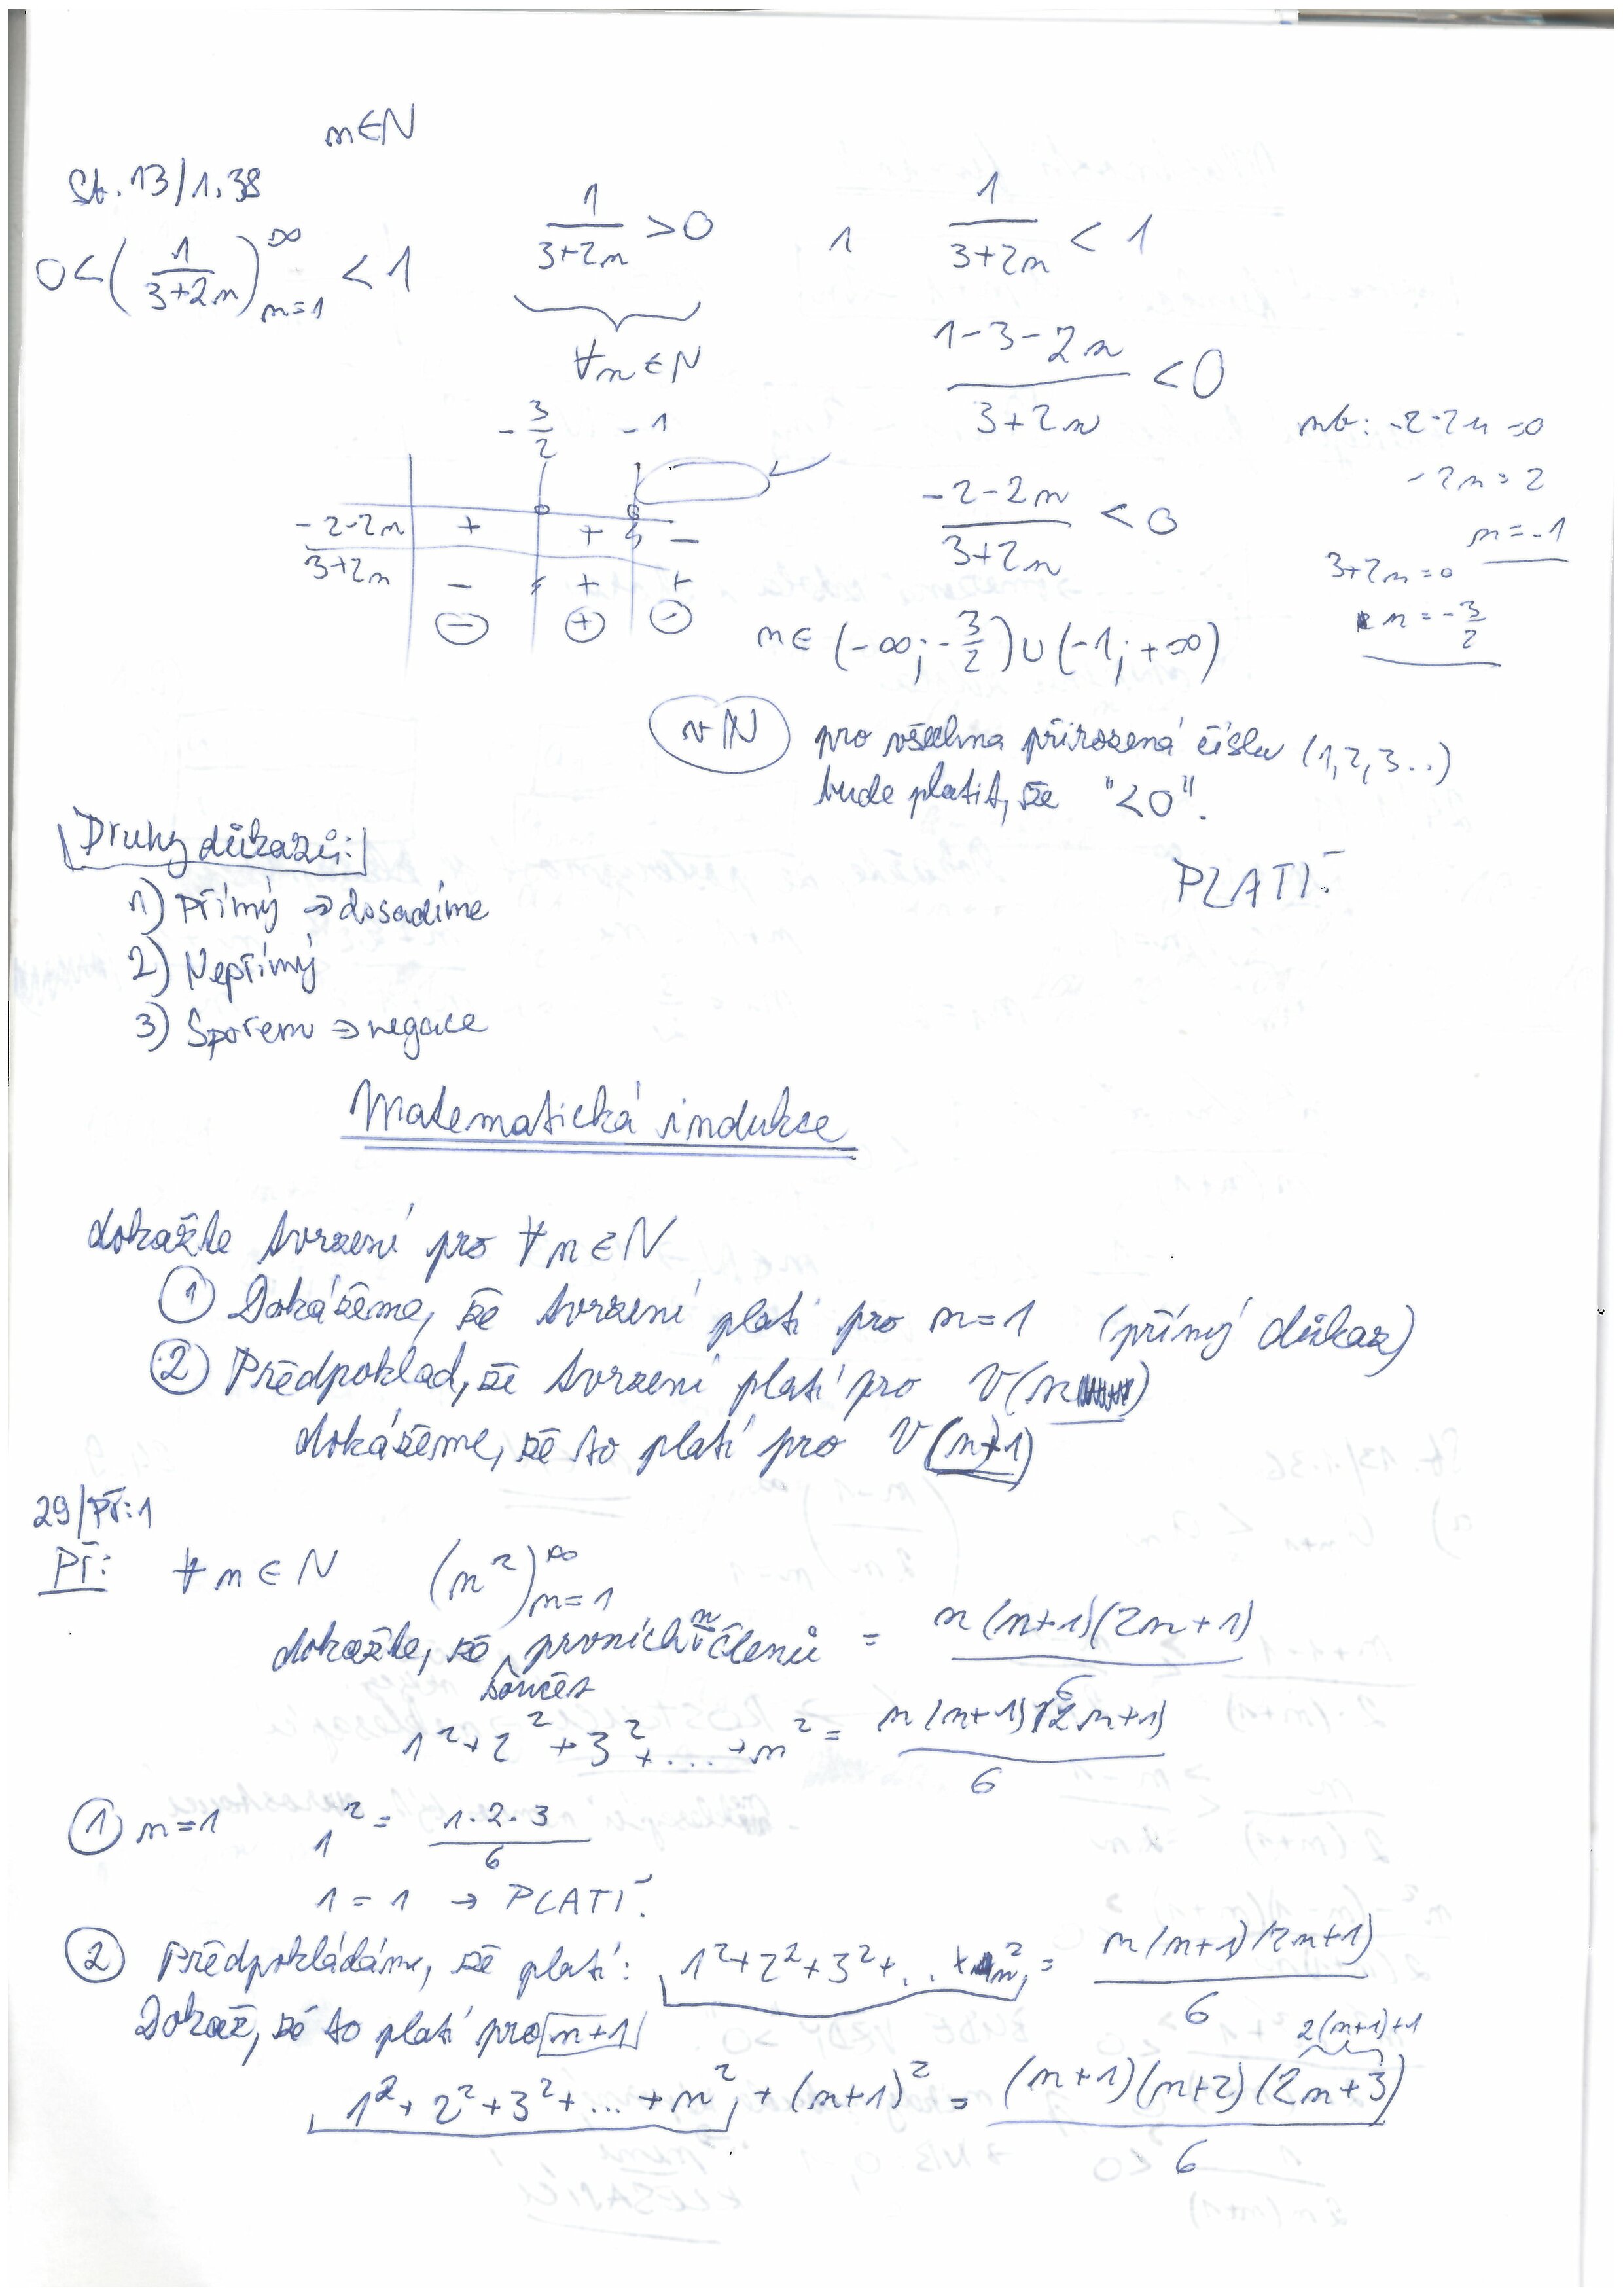 n∈N
Sb. 13/1.38
0 < (1/(3+2n))_{n=1}^{∞} < 1
1/(3+2n) > 0 ∧ 1/(3+2n) < 1
∀n∈N
(1-3-2n)/(3+2n) < 0
-3/2 -1
-2-2n + + -
3+2n - + +
- + -
(-2-2n)/(3+2n) < 0
nb: -2-2n=0
-2n=2
n=-1
3+2n=0
n=-3/2
n∈(-∞; -3/2)∪(-1; +∞)
v N pro všechna přirozená čísla (1,2,3..)
bude platit, že "<0".
PLATÍ
Druhy důkazů:
1) Přímý ⇒ dosadíme
2) Nepřímý
3) Sporem ⇒ negace
Matematická indukce
dokažte tvrzení pro ∀n∈N
① Dokážeme, že tvrzení platí pro n=1 (přímý důkaz)
② Předpoklad, že tvrzení platí pro V(n)
dokážeme, že to platí pro V(n+1)
29/Př:1
Př: ∀n∈N (n²)_{n=1}^{∞}
dokažte, že součet prvních n členů = n(n+1)(2n+1)/6
1²+2²+3²+...+n² = n(n+1)(2n+1)/6
① n=1 1² = 1·2·3/6
1=1 → PLATÍ.
② Předpokládáme, že platí: 1²+2²+3²+...+n² = n(n+1)(2n+1)/6
Dokaž, že to platí pro n+1
2(n+1)+1
1²+2²+3²+...+n²+(n+1)² = (n+1)(n+2)(2n+3)/6